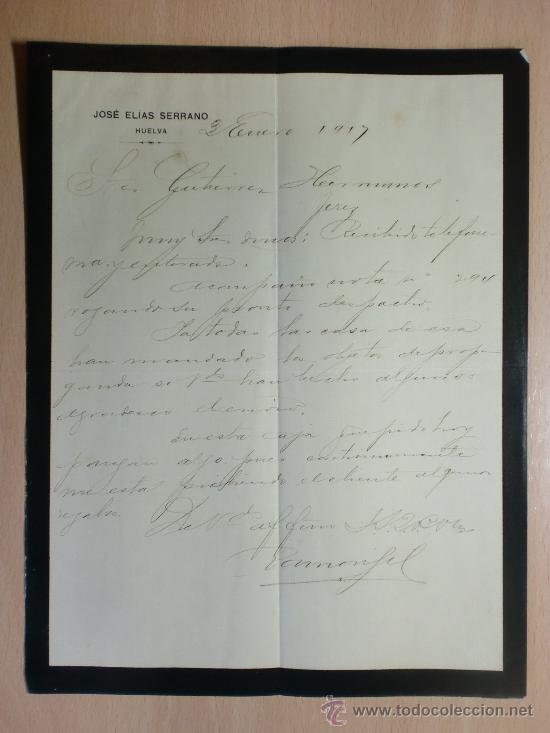 JOSÉ ELÍAS SERRANO
HUELVA
3 Enero 1917
Sres Gutierrez Hermanos
Jerez
Muy Sres mios: Recibido telefone
ma y enterado.
Acompaño nota nº 294
rogando su pronto despacho.
Ya todas las casas de esa
han mandado los objetos de propa
ganda si Vds han hecho algunos
agradeceré el envio.
En esta caja que pido hoy
pongan algo pues continuamente
me estan pidiendo el cliente algunos
regalos
De Vds affmo
todocoleccion
www.todocoleccion.net